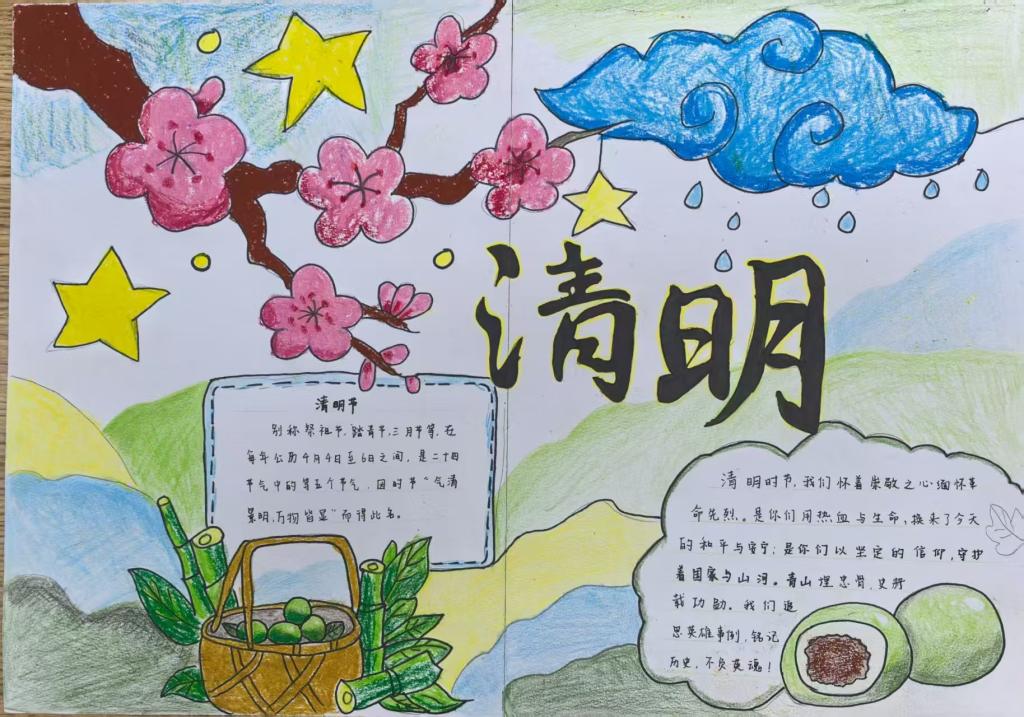 清明
清明节
别称祭祖节，踏青节，三月节等，在
每年公历4月4日至6日之间，是二十四
节气中的第五个节气，因时节"气清
景明，万物皆显"而得此名。
清明时节，我们怀着崇敬之心缅怀革
命先烈。是你们用热血与生命，换来了今天
的和平与安宁；是你们以坚定的信仰，守护
着国家与山河。青山埋忠骨，史册
载功勋。我们追
思英雄事例，铭记
历史，不负英魂！